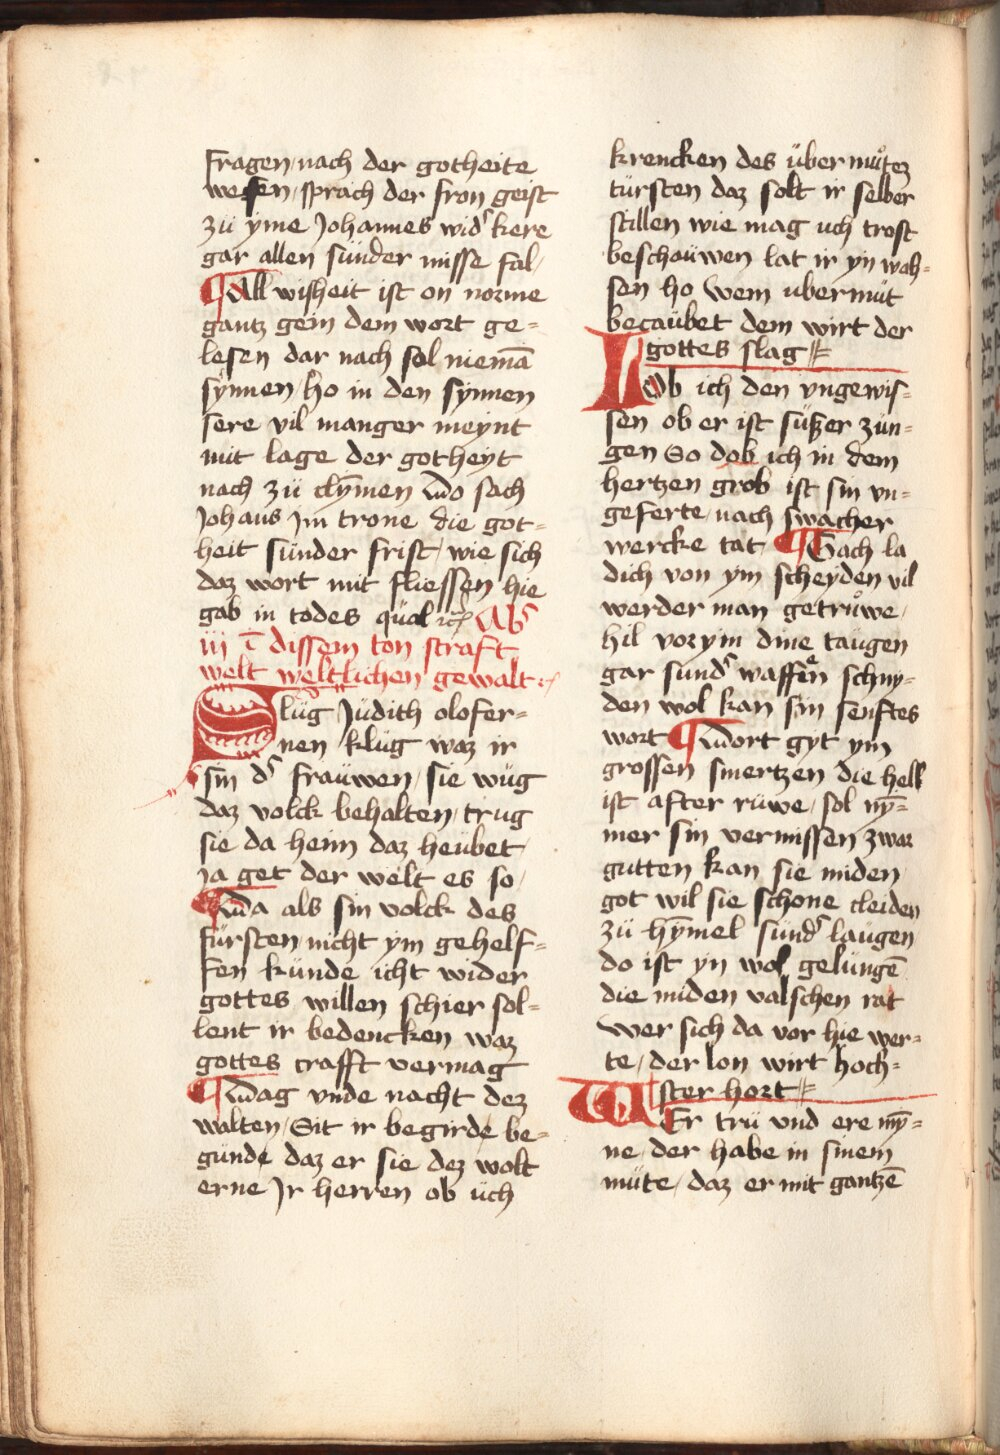 fragen / nach der gotheite
wesen / sprach der fron geist
zü yme Johannes wid' kere
gar allen sünder misse fal /
¶ All wisheit ist on norme
gantz gein dem wort ge=
lesen dar nach sol niemā
synnen / ho in den synnen
sere vil manger meynt
mit lage der gotheyt
nach zü clȳmen Wo sach
Johans Jm trone die got=
heit sünder frist / wie sich
daz wort mit fliessen hie
gab in todes qüal
iij ī dissem ton straft
welt weltlichen gewalt
Slüg Jüdith olofer=
nen / klüg waz ir
sin d' fraüwen / sie wüg
daz volck behalten / trug
sie da heim daz heübet
ja get der welt es so /
Wa als sin volck des
fürsten / nicht ym gehelf=
fen künde icht wider
gottes willen schier sol=
lent ir bedencken waz
gottes crafft vermag
¶ Wag vnde nacht dez
walten / Sit ir begirde be=
günde daz er sie dez wolt
erne Jr herren ob üch
krencken des über muͦtez
türsten daz solt ir selber
stillen wie mag uch trost
beschaüwen lat ir yn wah=
sen ho Wem ubermüt
becaübet dem wirt der
gottes slag
Lob ich den vngewis=
sen ob er ist süßer zün=
gen So dob ich in dem
hertzen grob ist sin vn=
geferte / nach swacher
wercke tat ¶ Gach la
dich von ym scheyden vil
werder man getruͦwe /
hil vor ym dine taügen
gar sund' waffen schny=
den wol kan sin senftes
wort ¶ Wort gyt ym
grossen smertzen die hell
ist after rüwe / sol nȳ=
mer sin vermissen zwar
gutten kan sie miden
got wil sie schone cleiden
zü hȳmel sünd' laügen
do ist yn wol gelüngē
die miden valschen rat
Wer sich da vor hie wer=
te / der lon wirt hoch=
ster hort
WEr trü vnd ere mȳ=
ne / der habe in sinem
müte / daz er mit gantzē